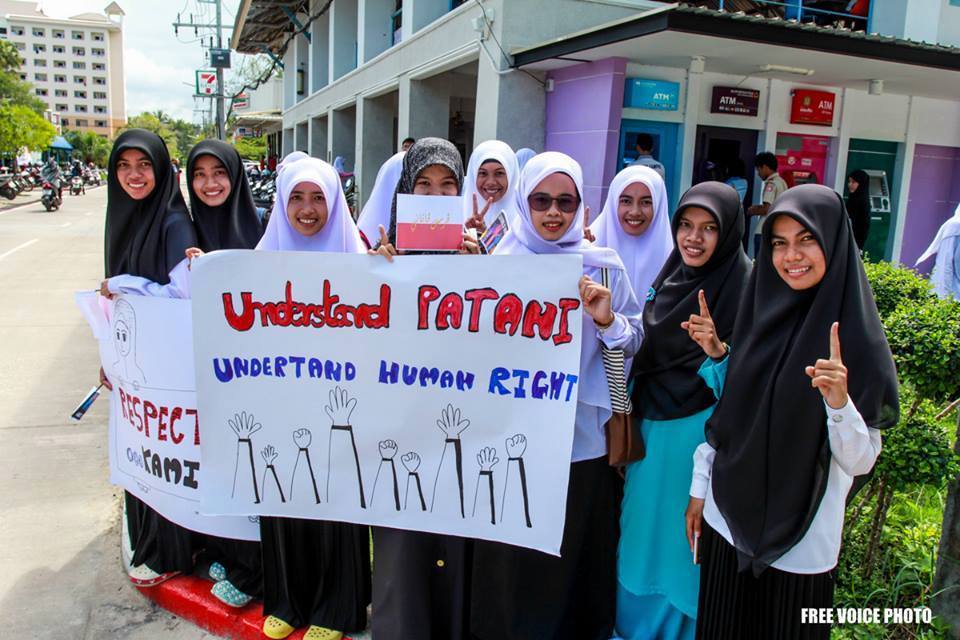 Understand PATANI
UNDERTAND HUMAN RIGHT
RESPECT
KAMI
7
ATM
ATM
ATM
FREE VOICE PHOTO